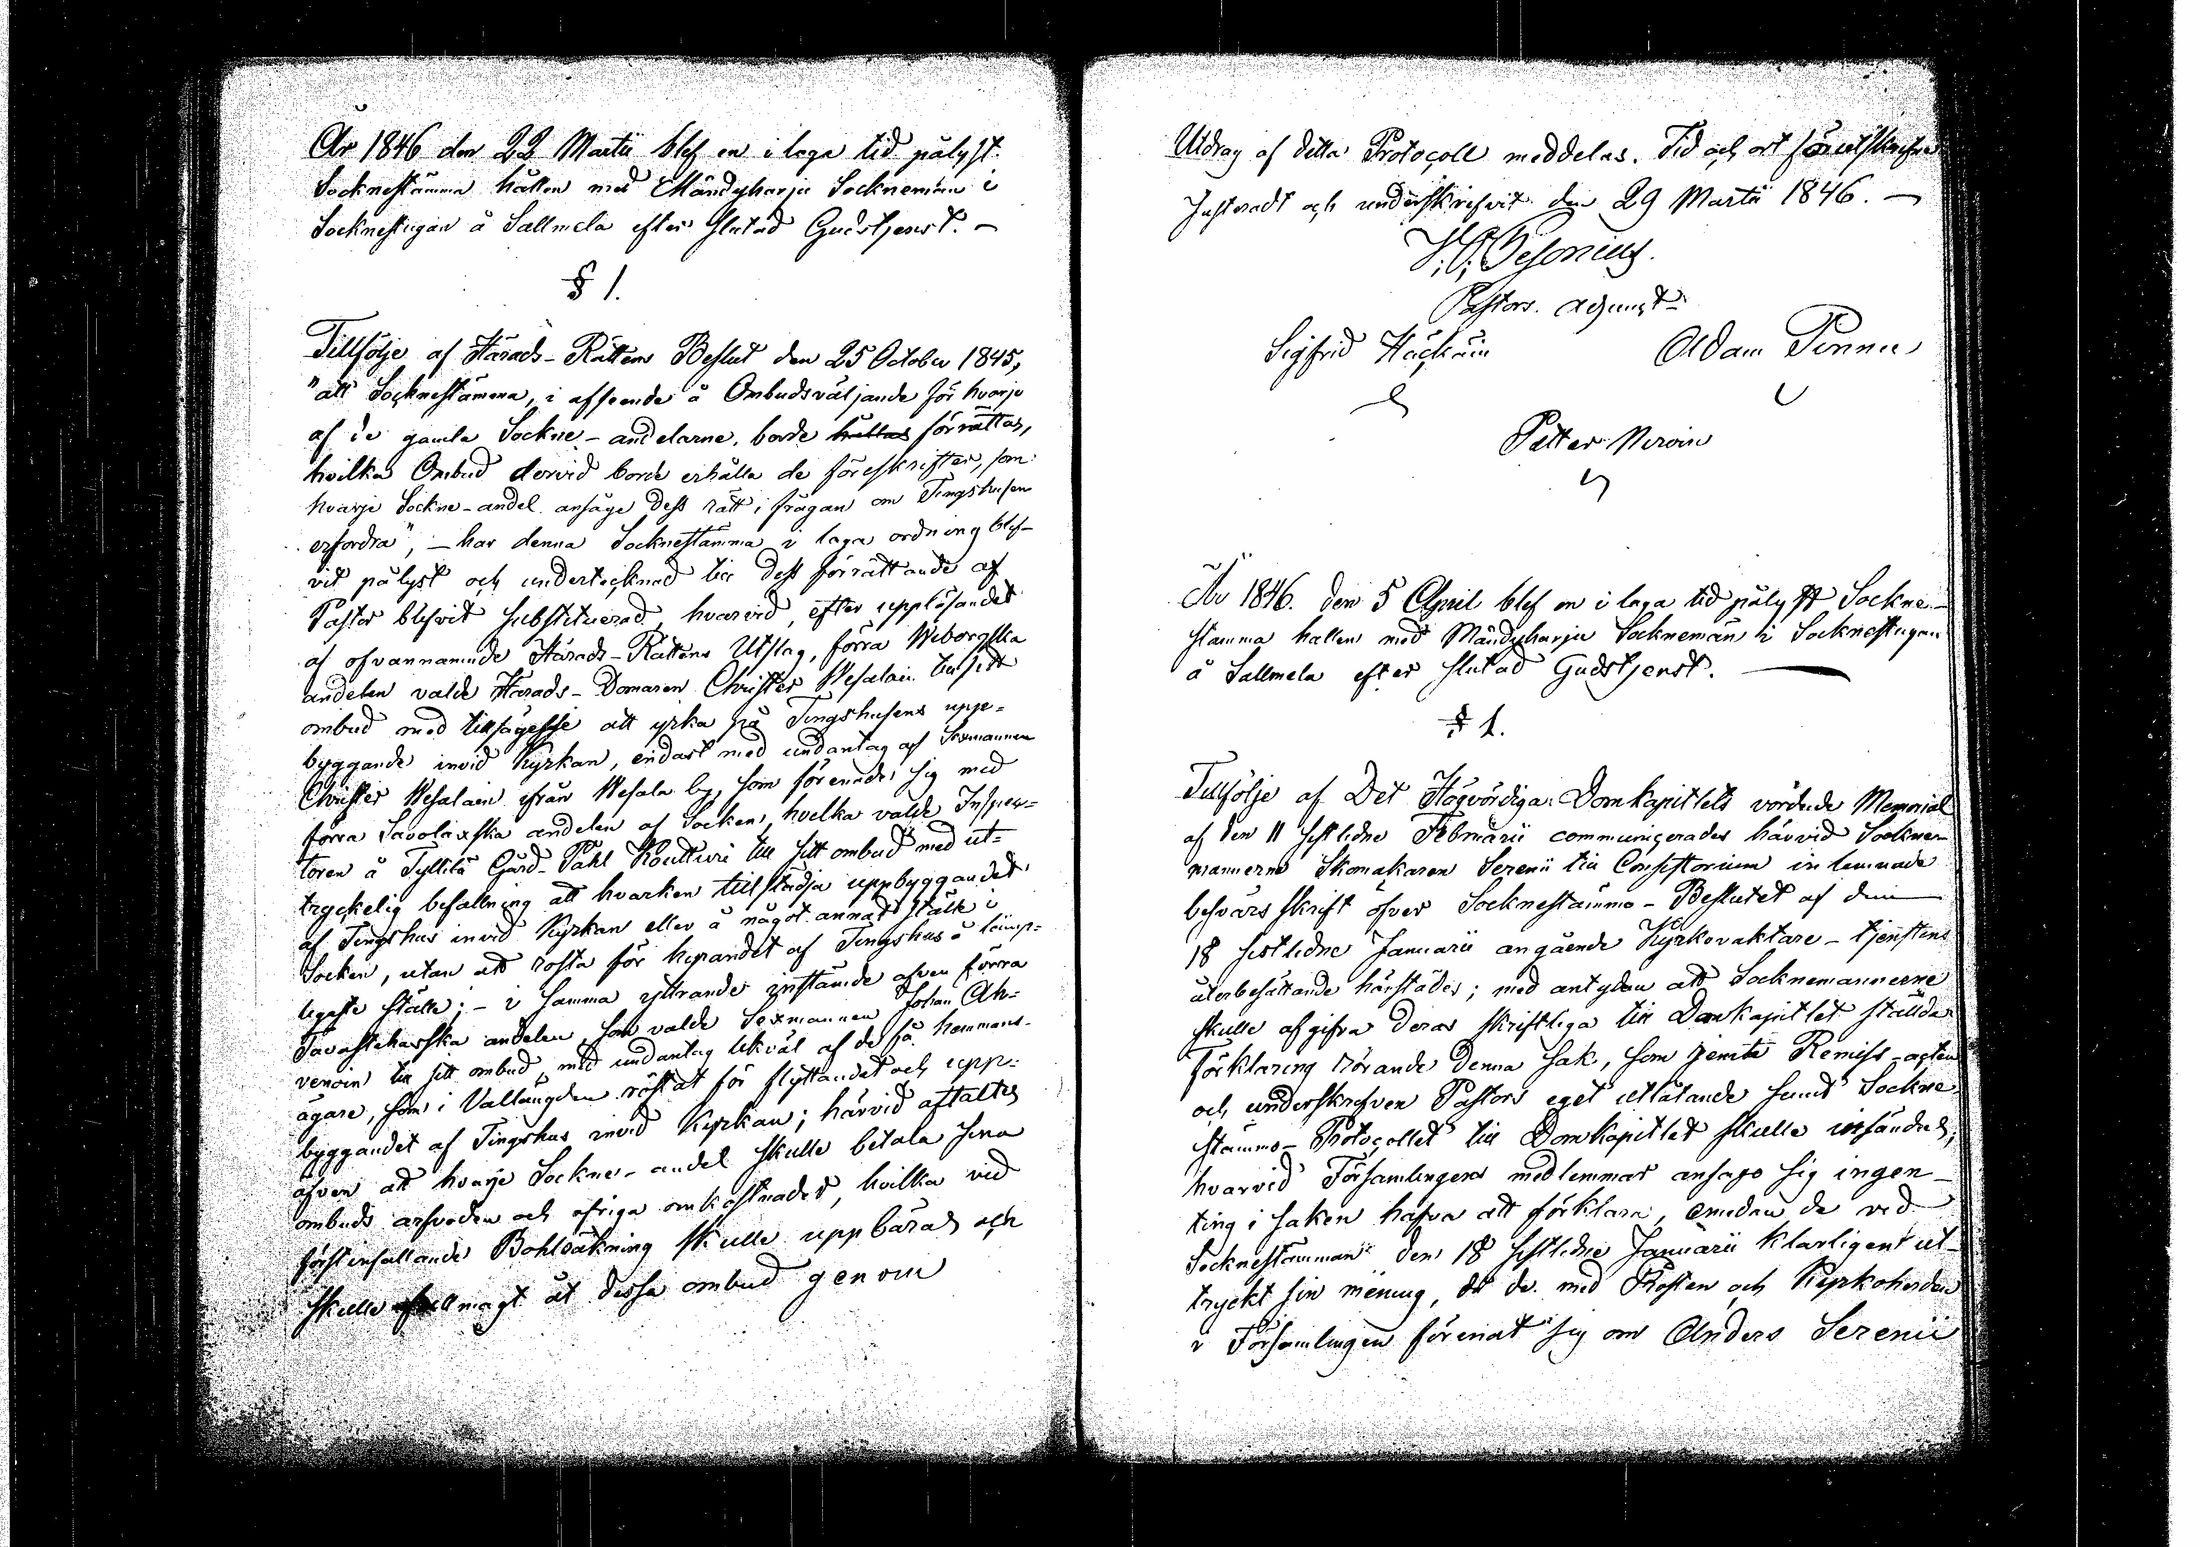 År 1846 den 22 Martii blef en i laga tid pålyst
Socknestämma hållen med Mändyharju Socknemän i
Socknestugan å Sallmela efter slutad Gudstjenst. —
§ 1.
Tillfölje af Härads-Rättens Beslut den 25 October 1845,
"att Socknestämma, i afseende å Ombudsväljande för hvarje
af de gamla Sockne-andelarne, borde hållas förrättas,
hvilka Ombud dervid borde erhålla de föreskrifter, som
hvarje Sockne-andel ansåge dess rätt i frågan om Tingshusen
erfordra", — har denna Socknestämma i laga ordning blef-
vit pålyst och undertecknad till dess förrättande af
Pastor blefvit substituerad, hvarvid, efter uppläsandet
af ofvannämnde Härads-Rättens Utslag, förra Wiborgska
andelen valde Härads-Domaren Christer Wesalain till sitt
ombud med tillsägelse att yrka på Tingshusens upp-
byggande invid Kyrkan, endast med undantag af Sexmannen
Christer Wesalain ifrån Wesala by, som förenade sig med
förra Savolaxska andelen af Socken, hvilka valde Inspec-
toren å Tyllilä Gård Pahl Koutturi till sitt ombud med ut-
tryckelig befallning att hvarken tillstädja uppbyggandet
af Tingshus invid Kyrkan eller å något annat ställe i
Socken, utan att rösta för hyrandet af Tingshus å lämp-
ligaste ställe; — i samma yttrande instämde äfven förra
Tavastehusska andelen, som valde Sexmannen Johan Ah-
venoin till sitt ombud, med undantag likväl af de få hemmans-
ägare, som i Vallängden röstat för flyttandet och upp-
byggandet af Tingshus invid Kyrkan; härvid aftaltes
äfven att hvarje Sockne-andel skulle betala sina
ombuds arfvoden och öfriga omkostnader, hvilka vid
först infallande Bohlräkning skulle uppbäras och
skulle fullmagt åt dessa ombud genom
Utdrag af detta Protocoll meddelas. Tid och ort förutskrifne
Justeradt och underskrifvit den 29 Martii 1846. —
Pastors adjunct
Sigfrid Häckäin
Adam Pennu
Petter Nironen
År 1846. den 5 April blef en i laga tid pålyst Sockne-
stämma hållen med Mändyharju Socknemän i Socknestugan
å Sallmela efter slutad Gudstjenst.
§ 1.
Tillfölje af Det Högvördiga Domkapitlets vördade Memorial
af den 11 sistledne Februarii communicerades härvid Sockne-
mannerne Skomakaren Serenii till Consistorium inlemnade
besvärs skrift öfver Socknestämmo-Beslutet af den
18 sistledne Januarii angående Kyrkovaktare-tjenstens
återbesättande härstädes; med antydan att Socknemannerne
skulle afgifva deras skriftliga till Domkapitlet ställda
Förklaring rörande denna sak, som jemte Remiss-acten
och underskrefven Pastors eget utlåtande samt Sockne-
stämmo-Protocollet till Domkapitlet skulle insändas;
hvarvid Församlingens medlemmar ansågo sig ingen-
ting i saken hafva att förklara, emedan de ved
Socknestämman den 18 sistledne Januarii klarligen ut-
tryckt sin mening, då de med Prosten och Kyrkoherden
i Församlingen förenat sig om Anders Serenii